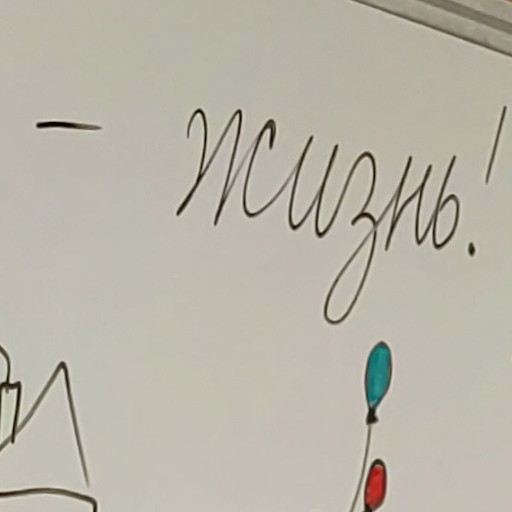 – жизнь!